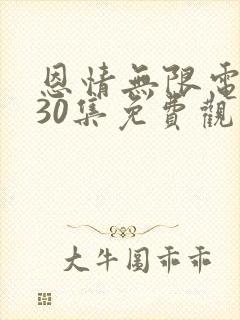 恩情無限電
30集免費觀
大牛圍乖乖